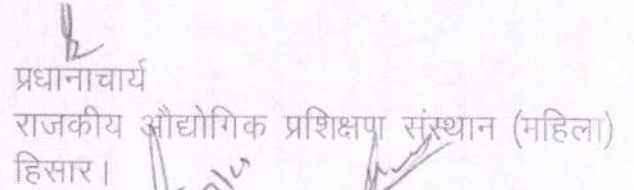 प्रधानाचार्य
राजकीय औद्योगिक प्रशिक्षण संस्थान (महिला)
हिसार।